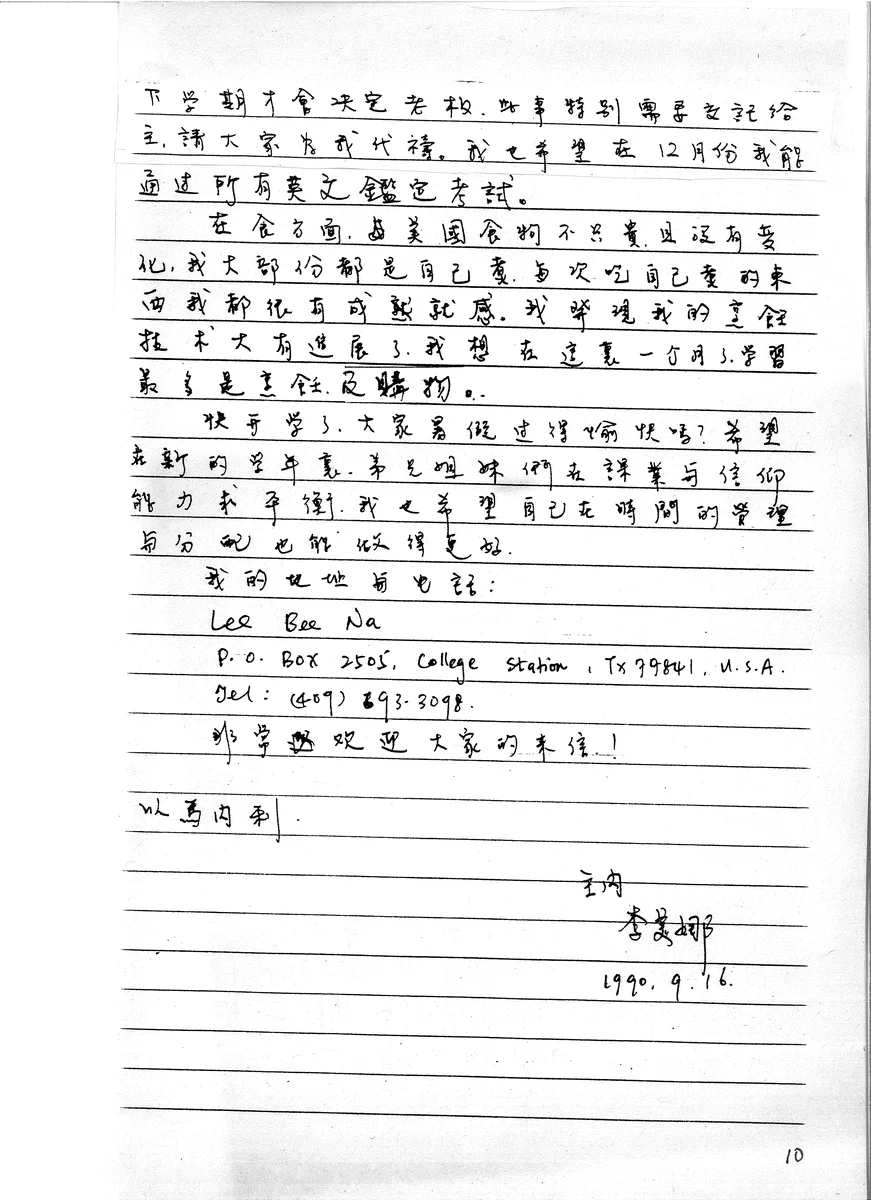 下学期才會決定老板.此事特別需要交託給
主,請大家为我代禱。我也希望在12月份我能
通过所有英文鑑定考試。
在食方面.美國食物不只貴,且沒有变
化,我大部份都是自己煮.每次吃自己煮的東
西我都很有成就感。我發現我的烹飪
技术大有進展了.我想在這裏一个月了学習
最多是烹飪.及購物。
快开学了.大家暑假过得愉快嗎?希望
在新的学年裏.弟兄姐妹們在課業与信仰
能力求平衡.我也希望自己在時間的管理
与分配也能做得更好.
我的地址与电話:
Lee Bee Na
P.O. BOX 2505, College Station, Tx 79841, U.S.A.
Tel: (409) 693-3098.
非常欢迎大家的来信!
以馬内利.
主内
李美娜
1990. 9. 16.
10